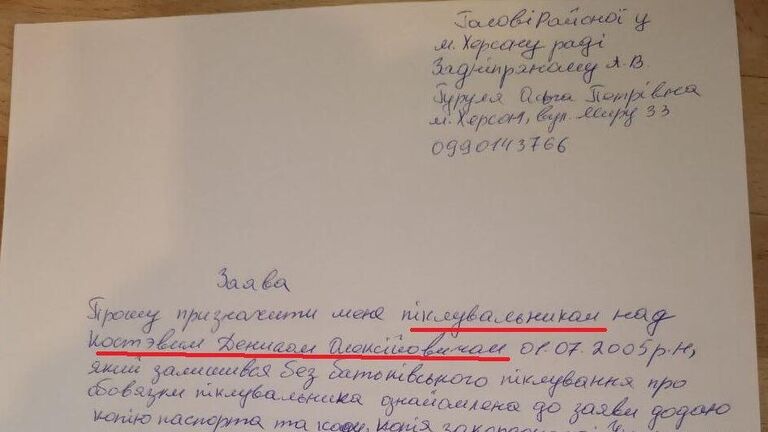 Голові Районої у
м. Херсону раді
Задніпряному А. В.
Гуруля Ольга Петрівна
м. Херсон, вул. Миру 33
0990143766
Заява
Прошу призначити мене піклувальником над
Костэвим Денисом Олексійовичам 01.07.2005р.н,
який залишився без батьківського піклування про
обовязки піклувальника ознайомлена до заяви додаю
копію паспорта та коду, копія